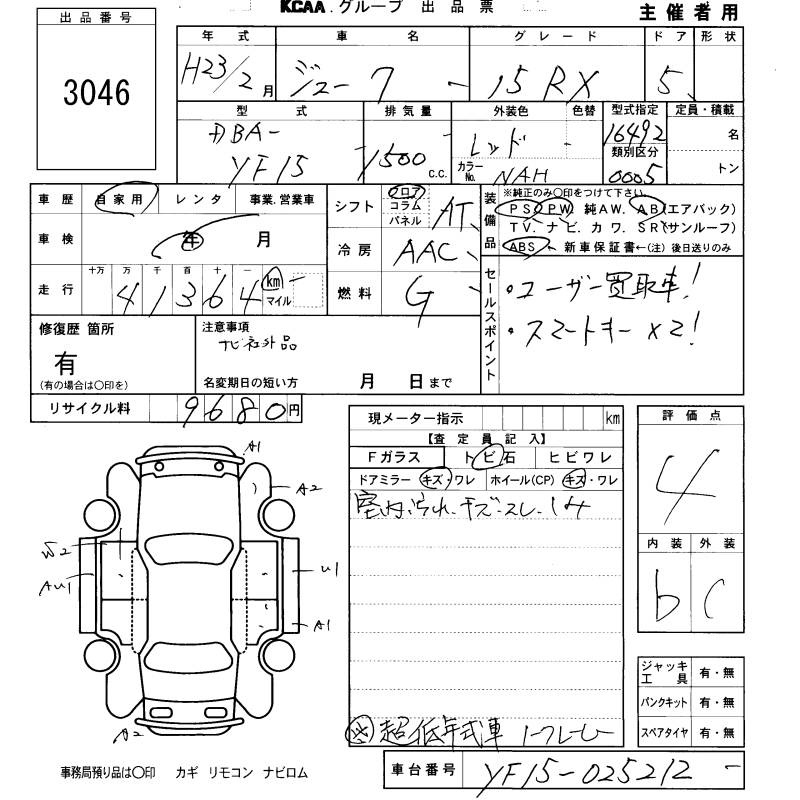 KCAA.グループ 出品票
主催者用
出品番号
3046
年式 車名 グレード ドア 形状
H23/2月 ジューク 15RX 5
型式 排気量 外装色 色替 型式指定 定員・積載
DBA- YF15 1500 c.c. レッド カラーNo. NAH 16492 名
類別区分
0005 トン
車歴 自家用 レンタ 事業.営業車
シフト フロア コラム パネル AT
装備品 ※純正のみ〇印をつけて下さい
PS PW 純AW. AB(エアバック)
TV. ナビ. カワ. SR(サンルーフ)
ABS 新車保証書←(注)後日送りのみ
車検 年 月
冷房 AAC
走行 十万 万 千 百 十 一
41364 km マイル
燃料 G
セールスポイント
・ユーザー買取車!
・スマートキー×2!
修復歴 箇所
有
(有の場合は〇印を)
注意事項
ナビ社外品
名変期日の短い方 月 日まで
リサイクル料 9680円
現メーター指示 km
【査定員記入】
Fガラス トビ石 ヒビワレ
ドアミラー キズ・ワレ ホイール(CP) キズ・ワレ
室内汚れ.キズ.スレ.シミ
評価点
4
内装 外装
b C
A1
A2
W2
AU1
U1
A1
A2
ジャッキ工具 有・無
パンクキット 有・無
スペアタイヤ 有・無
超低年式車
事務局預り品は〇印 カギ リモコン ナビロム
車台番号 YF15-025212